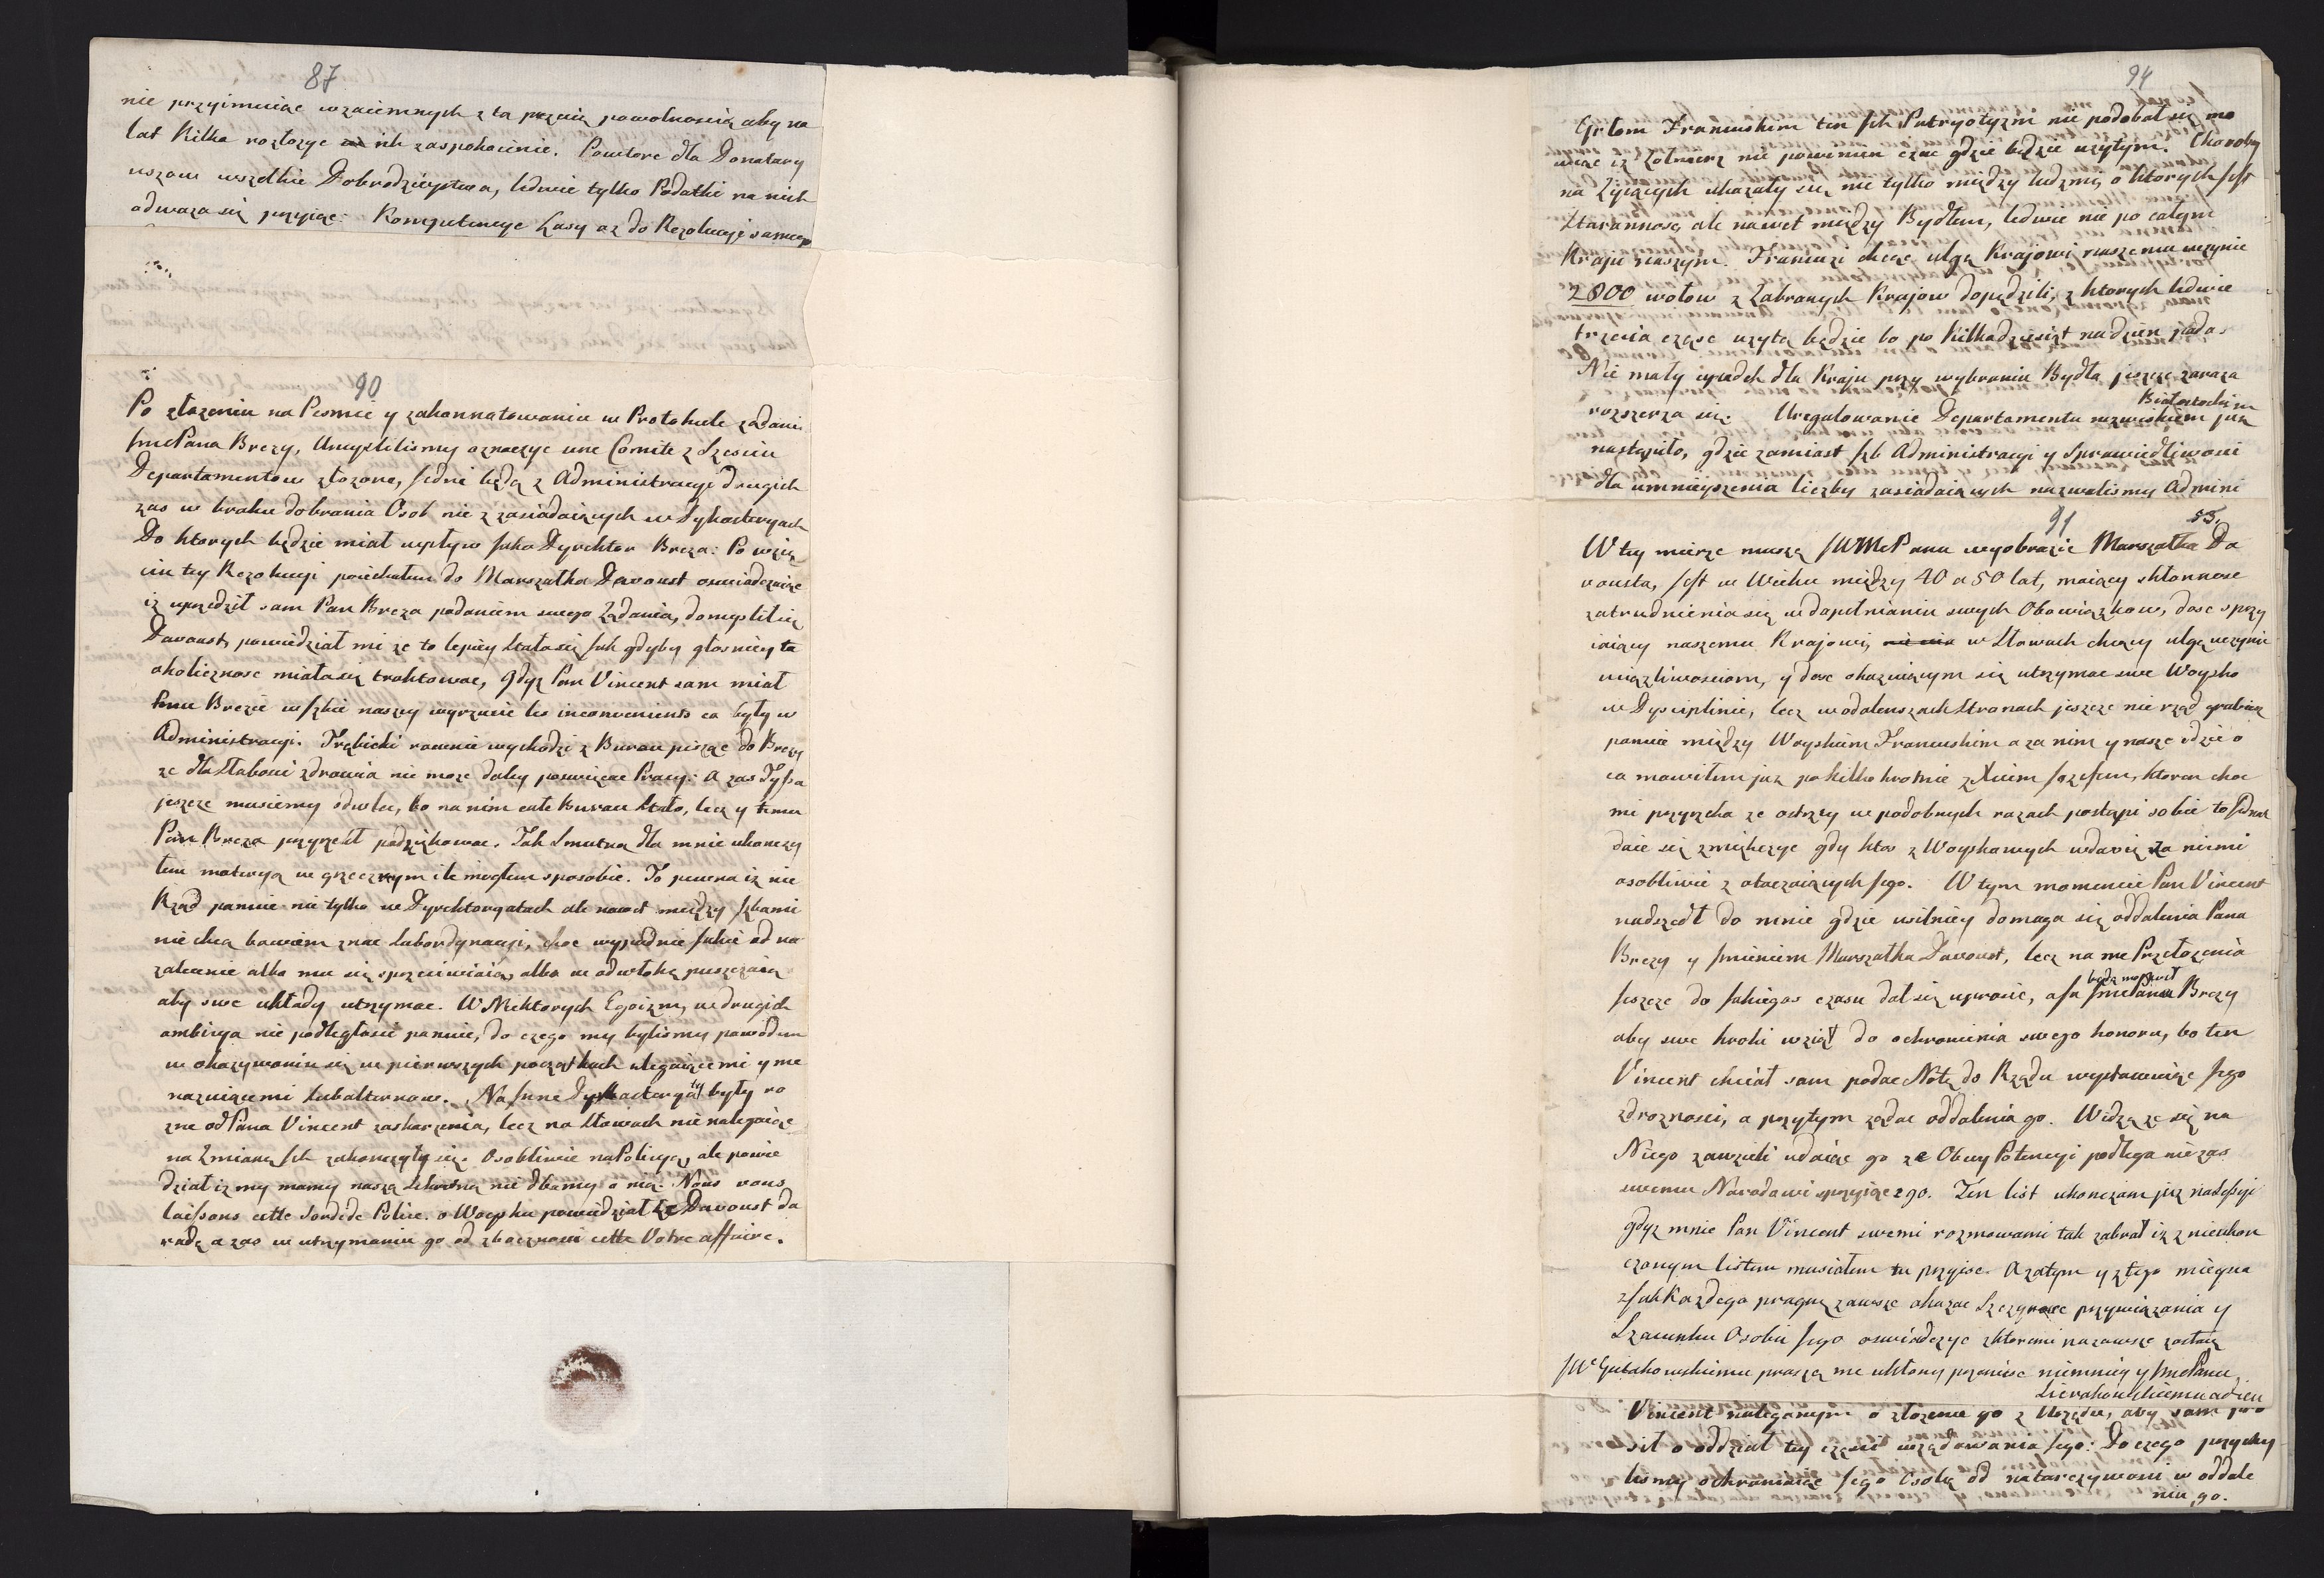 87
nie przyimuiąc wzaiemnych z tą przecię powolnoscią aby na
lat Kilka rozłozyc ich zaspokoienie. Powtore dla Donatary
uszow wszelkie Dobrodzieystwa, ledwie tylko Podatki na nich
odwaza się przyiąc: Kompetencye Lasy az do Rezolucyi samego
90
Po złozeniu na Pismie y zakonnotowaniu w Protokule ządania
JmcPana Brezy, Umyslilismy oznaczyc une Comite z Szesciu
Departamentow złozone, Jedni będą z Administracyi drugich
zas w braku dobrania Osob nie z zasiadaiących w Dykasteryach
Do ktorych będzie miał wpływ Jako Dyrektor Breza: Po wzię
ciu tey Rezolucyi poiechałem do Marszałka Davoust oswiadczaiąc
iz uprzedził sam Pan Breza podaniem swego Ządania, domyslił się
Davoust, powiedział mi ze to lepiey stało się Jak gdyby głosniey ta
okolicznosc miała się traktowac, gdyz Pan Vincent sam miał
Jmu Brezie w Jzbie naszey wyrzucic les inconvenients co były w
Administracyi. Trębicki rownie wychodzi z Bureau pisząc do Brezy
ze dla słabosci zdrowia nie moze daley poswięcac Pracy: a zas Tyssa
jeszcze musiemy odwlec, bo na nim całe Bureau stało, lecz y temu
Pan Breza przyrzekł podziękowac. Tak Smutną dla mnie ukonczy
łem materyą w grzecznym ile mogłem sposobie. To pewna iz nie
Rząd panuie nie tylko w Dyrektoryatach ale nawet między Jzbami
nie chcą bowiem znac Subordynacyi, choc wypadnie Jakie od na
zalecenie albo mu się sprzeciwiaią, albo w odwłokę puszczaią
aby swe układy utrzymac. W Niektorych Egoizm, w drugich
ambicya nie podległosci panuie, do czego my bylismy powodem
w okazywaniu się w pierwszych początkach ulegaiącemi y nie
naznaiącemi Subalternow. Na Jnne Dykasterya ty były ro
zne od Pana Vincent zaskarzenia, lecz na słowach nie nalegaiąc
na Zmianę Jch zakonczyły się. Osobliwie na Policyą, ale powie
dział iz my mamy naszą Sekretną nie dbamy o nią. Nous vous
laissons cette Sordide Police. o Woysku powiedział ze Davoust da
radę a zas w utrzymaniu go od zboczności cette Votre affaire.
94
Grłom Francuskim ten Jch Patryotyzm nie podobał się mo
wiąc iz Zołnierz nie powinien czuc gdzie będzie uzytym. Choroby
na Zyiących ukazały się nie tylko między ludzmi, o ktorych Jest
Starannosc ale nawet między Bydłem, ledwie nie po całym
Kraju naszym. Francuzi chcąc ulgę Krajowi naszemu uczynic
2800 wołow z Zabranych Krajow dopędzili, z ktorych ledwie
trzecia częsc uzytą będzie bo po Kilkadziesiąt na dzien pada.
Nie mały uszczerb dla Kraju przy wybraniu Bydła jeszcze zaraza
Białostockim
rozszerza się. Uregulowanie Departamentu nazwiskiem juz
nastąpiło, gdzie zamiast Jzb Administracyi y Sprawiedliwosci
dla umnieyszenia liczby zasiadaiących nazwalismy Admini
91 53.
W tey mierze muszę JWMcPanu wyobrazic Marszałka Da
vousta, Jest w Wieku między 40 a 50 lat, maiący skłonnosc
zatrudnienia się w dopełnianiu swych Obowiązkow, dosc sprzy
iaiący naszemu Krajowi, w Słowach chcący ulgę uczynic
uciązliwosciom, y dosc okazuiącym się utrzymac swe Woysko
w Dyscyplinie, lecz w odalenszach Stronach jeszcze nie rząd grabiez
panuie między Woyskiem Francuskim a za nim y nasze idzie o
co mowiłem juz po kilkokrotnie z Xciem Jozefem, ktoren choc
mi przyrzeka ze ostrzey w podobnych razach postąpi sobie to Jednak
daie się zmiękczyc gdy ktos z Woyskowych wdaie się za niemi
osobliwie z otaczaiących Jego. W tym momencie Pan Vincent
nadszedł do mnie gdzie usilniey domaga się oddalenia Pana
Brezy y Jmieniem Marszałka Davoust, lecz na me Przełozenia
Jeszcze do Jakiegos czasu dał się uprosic, a Ja Jmcpanu Brezy
aby swe kroki wziął do ochronienia swego honoru, bo ten
Vincent chciał sam podac Notę do Rządu wystawuiąc Jego
zdroznosci, a przytym ządac oddalenia go. Widzę ze się na
Niego zawzieli udaiąc go ze Obcey Potencyi podlega nie zas
swemu Narodowi sprzyiaiącego. Ten list ukonczam juz na Sessyi
gdyz mnie Pan Vincent swemi rozmowami tak zabrał iz z nieukon
czonym listem musiałem tu przyisc. A zatym y z tego mieysca
z Jak Kazdego pragnę zawsze okazac Szczyrosc przywiązania y
Szacunku Osobie Jego oswiadczyc z ktoremi nazawsze zostaię
JWc Gutakowskiemu proszę me ukłony przeniesc niemniey y JmcPanu
Sierakowskiemu adieu
Vincent naleganym o złozenie go z Urzędu, aby sam pro
sił o oddział tey częsci urzędowania Jego: Do czego przychy
lismy ochraniaiąc Jego Osobę od natarczywosci w oddale
niu go.